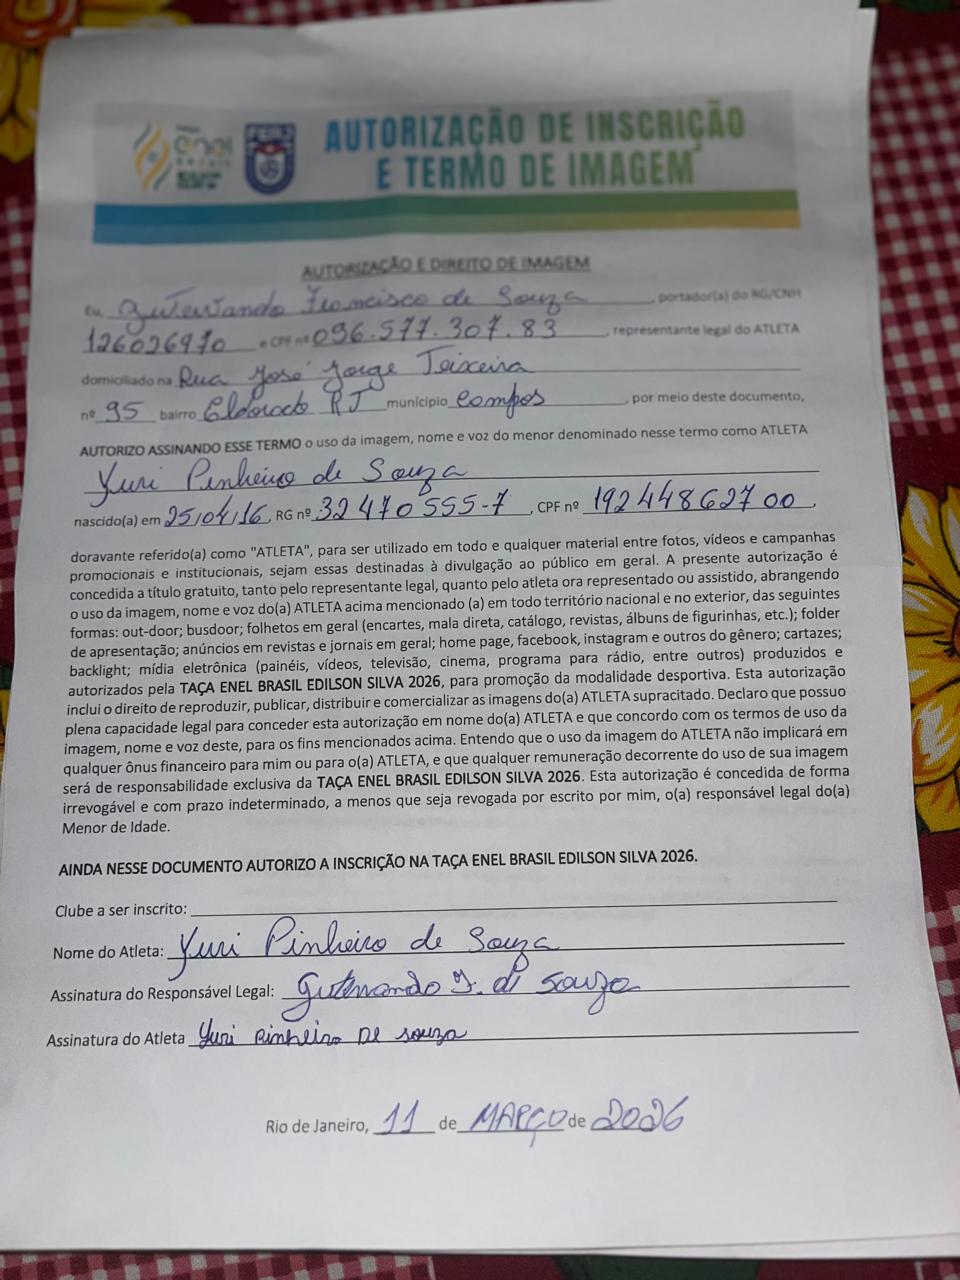 enel
BRASIL
AUTORIZAÇÃO DE INSCRIÇÃO
E TERMO DE IMAGEM
AUTORIZAÇÃO E DIREITO DE IMAGEM
Eu, Francisco de Souza, portador(a) do RG/CNH
126026970 e CPF nº 096.577.307.83, representante legal do ATLETA
domiciliado na Rua José Jorge Teixeira
nº 95 bairro Eldorado RJ município Campos, por meio deste documento,
AUTORIZO ASSINANDO ESSE TERMO o uso da imagem, nome e voz do menor denominado nesse termo como ATLETA
Yuri Pinheiro de Souza
nascido(a) em 25/04/16, RG nº 32470555-7, CPF nº 19244862700,
doravante referido(a) como "ATLETA", para ser utilizado em todo e qualquer material entre fotos, vídeos e campanhas
promocionais e institucionais, sejam essas destinadas à divulgação ao público em geral. A presente autorização é
concedida a título gratuito, tanto pelo representante legal, quanto pelo atleta ora representado ou assistido, abrangendo
o uso da imagem, nome e voz do(a) ATLETA acima mencionado (a) em todo território nacional e no exterior, das seguintes
formas: out-door; busdoor; folhetos em geral (encartes, mala direta, catálogo, revistas, álbuns de figurinhas, etc.); folder
de apresentação; anúncios em revistas e jornais em geral; home page, facebook, instagram e outros do gênero; cartazes;
backlight; mídia eletrônica (painéis, vídeos, televisão, cinema, programa para rádio, entre outros) produzidos e
autorizados pela TAÇA ENEL BRASIL EDILSON SILVA 2026, para promoção da modalidade desportiva. Esta autorização
inclui o direito de reproduzir, publicar, distribuir e comercializar as imagens do(a) ATLETA supracitado. Declaro que possuo
plena capacidade legal para conceder esta autorização em nome do(a) ATLETA e que concordo com os termos de uso da
imagem, nome e voz deste, para os fins mencionados acima. Entendo que o uso da imagem do ATLETA não implicará em
qualquer ônus financeiro para mim ou para o(a) ATLETA, e que qualquer remuneração decorrente do uso de sua imagem
será de responsabilidade exclusiva da TAÇA ENEL BRASIL EDILSON SILVA 2026. Esta autorização é concedida de forma
irrevogável e com prazo indeterminado, a menos que seja revogada por escrito por mim, o(a) responsável legal do(a)
Menor de Idade.
AINDA NESSE DOCUMENTO AUTORIZO A INSCRIÇÃO NA TAÇA ENEL BRASIL EDILSON SILVA 2026.
Clube a ser inscrito:
Nome do Atleta: Yuri Pinheiro de Souza
Assinatura do Responsável Legal: F. de Souza
Assinatura do Atleta Yuri Pinheiro De souza
Rio de Janeiro, 11 de MARÇO de 2026